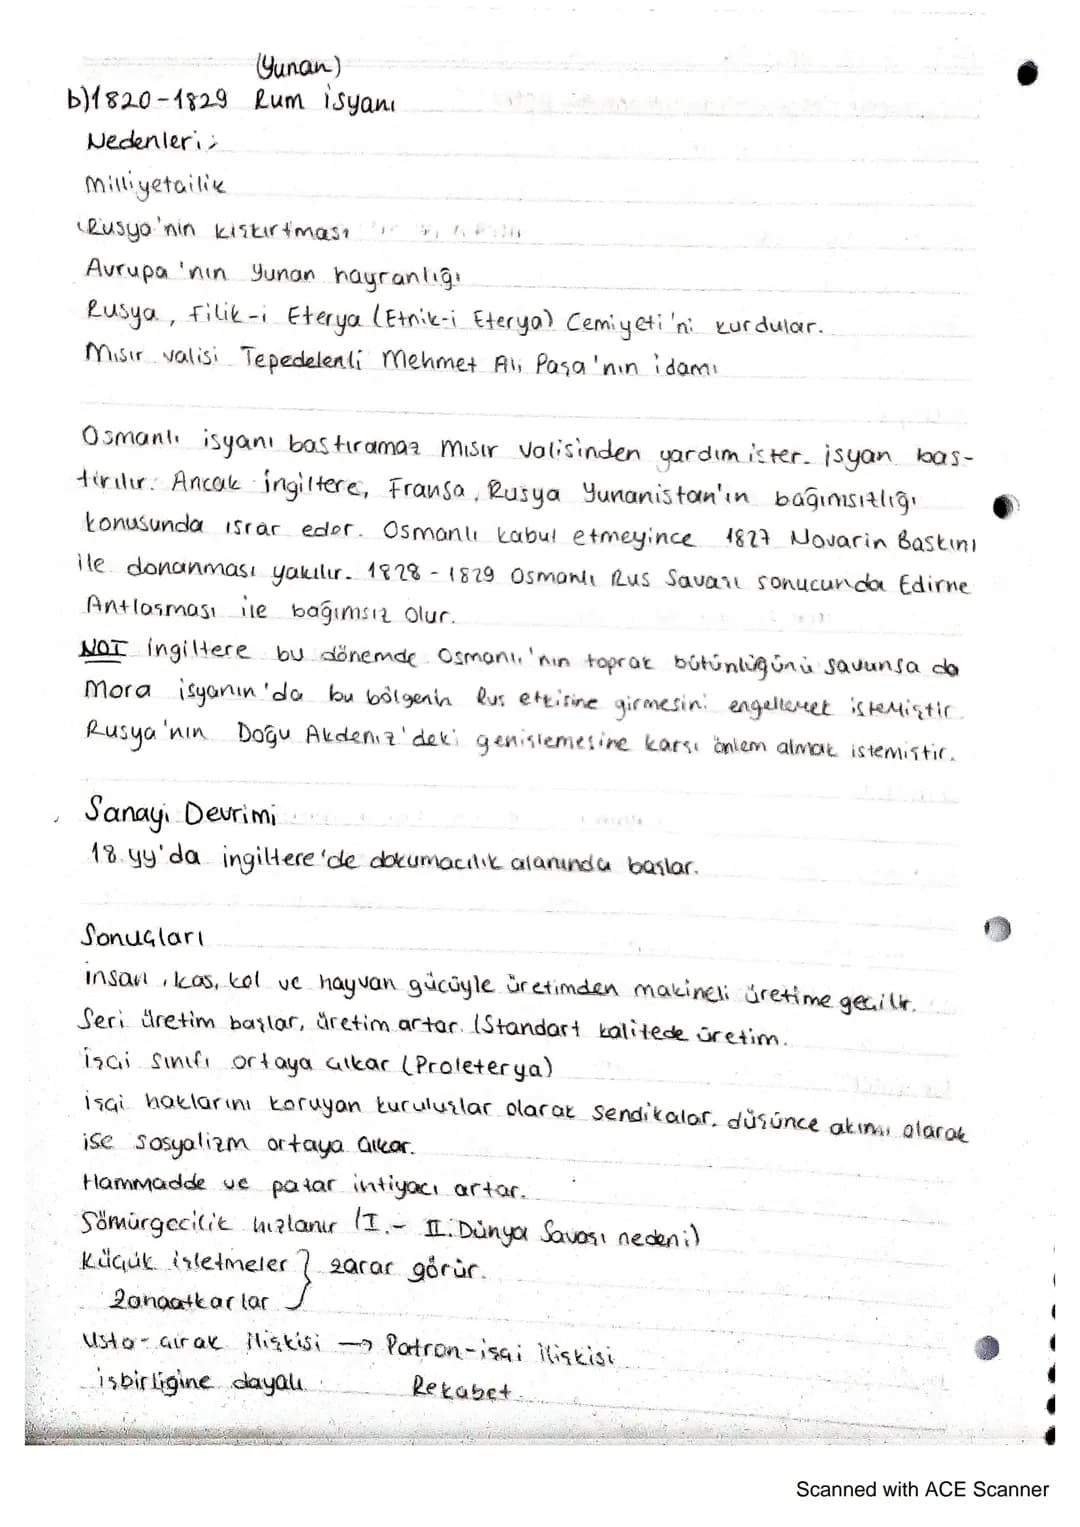 (Yunan)
b)1820-1829 Rum isyanı
Nedenleri:
Milliyetçilik
Rusya'nin kıskırtması
Avrupa'nın Yunan hayranlığı
Rusya, Filik-i Eterya (Etnik-i Eterya) Cemiyeti'ni kurdular.
Mısır valisi Tepedelenli Mehmet Ali Paşa'nın idamı
Osmanlı isyanı bastıramaz mısır valisinden yardım ister. isyan bas-
tırılır. Ancak ingiltere, Fransa, Rusya Yunanistan'ın bağımsızlığı
konusunda ısrar eder. Osmanlı kabul etmeyince 1827 Novarin Baskını
ile donanması yakılır. 1828-1829 Osmanlı Rus Savaşı sonucunda Edirne
Antlaşması ile bağımsız olur.
NOT ingiltere bu dönemde Osmanlı'nın toprak bütünlüğünü savunsa da
Mora isyanın'da bu bölgenin Rus etkisine girmesini engellemek istemiştir.
Rusya'nın Doğu Akdeniz'deki genişlemesine karşı önlem almak istemiştir.
Sanayi Devrimi
18.yy'da ingiltere'de dokumacılık alanında başlar.
Sonuçları
insan, kas, kol ve hayvan gücüyle üretimden makineli üretime geçilir.
Seri üretim başlar, üretim artar. (Standart kalitede üretim.
işçi sınıfı ortaya çıkar (Proleterya)
işçi haklarını koruyan kuruluşlar olarak sendikalar, düşünce akımı olarak
ise sosyalizm ortaya çıkar.
Hammadde ve pazar intiyacı artar.
Sömürgecilik hızlanır (I.- II. Dünya Savaşı nedeni)
Küçük işletmeler } zarar görür.
Zanaatkarlar
Usta-çırak ilişkisi → Patron-işçi ilişkisi
işbirliğine dayalı Rekabet
Scanned with ACE Scanner